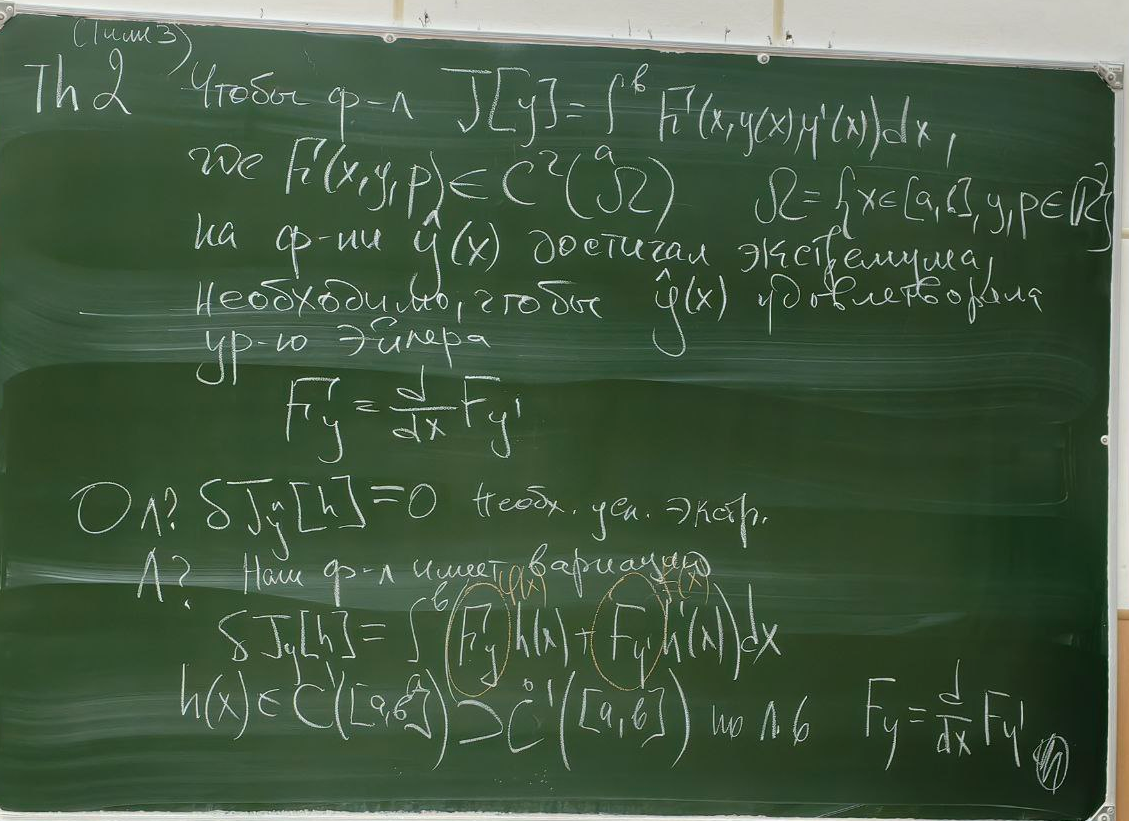 (1 или 3)
Th 2 Чтобы ф-л J[y] = ∫ₐᵇ F(x, y(x), y'(x))dx,
где F(x,y,p) ∈ C²(Ω) Ω = {x∈[a,b], y,p∈ℝ}
на ф-ии ŷ(x) достигал экстремума,
необходимо, чтобы ŷ(x) удовлетворяла
ур-ю Эйлера
F_y = d/dx F_y'
Л? δJ_ŷ[h] = 0 Необх. усл. экстр.
Л? Наш ф-л имеет вариацию
φ(x)
δJ_y[h] = ∫ₐᵇ (F_y h(x) + F_y' h'(x))dx
h(x) ∈ C¹([a,b]) ⊃ C̊¹([a,b]) по Л 6 F_y = d/dx F_y'